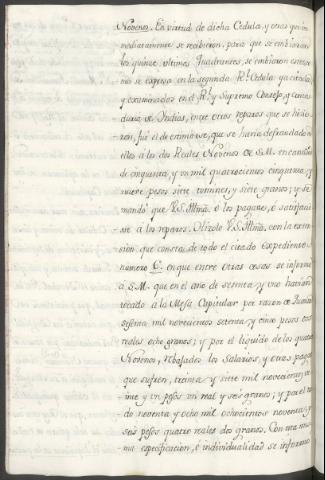 Novenos. En virtud de dicha Cedula, y otras que in
mediatamente se recibieron, para que se embiaran
los quince ultimos Quadrantes, se embiaron como
se expresa en la segunda Rl. Cedula ya citada,
y examinados en el Rl. y Supremo Consejo, y Conta
duria de Indias, entre otros reparos que se hicie
ron, fué el de estimarse, que se havia defraudado en
ellos á los dos Reales Novenos de S.M. en cantidad
de cinquenta, y un mil quatrocientos cinquenta, y
nueve pesos siete tomines, y siete granos; y se
mandó que V.S. Illma. ó los pagase, ó satisfacie
se á los reparos. Hizolo V.S. Illma. con la exten
sion que consta de todo el citado Expediente
numero en que entre otras cosas se informó
á S.M. que en el año de sesenta, y uno havian
tocado á la Mesa Capitular por razon de
sesenta mil novecientos setenta, y cinco pesos
reales ocho granos; y por el liquido de los quatro
Novenos, rebajados los Salarios, y otros pagos
que sufren, treinta, y siete mil novecientos
y un pesos un real y seis granos; y por el
de noventa, y ocho mil ochocientos noventa, y
seis pesos quatro reales dos granos. Con una
especificacion, é individualidad se informo